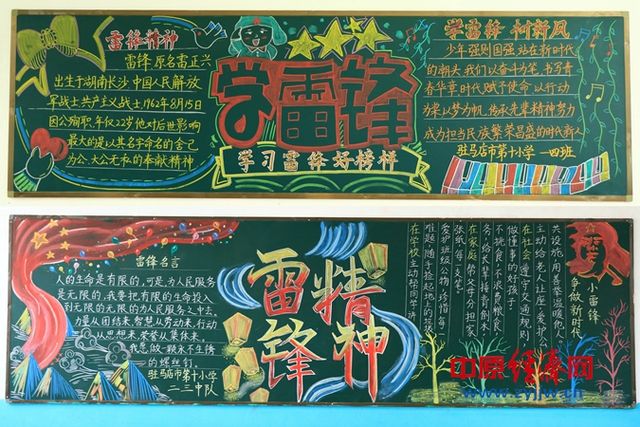 雷锋精神
雷锋,原名雷正兴
出生于湖南长沙,中国人民解放
军战士,共产主义战士,1962年8月15日
因公殉职,年仅22岁,他对后世影响
最大的是以其名字命名的舍己
为公、大公无私的奉献精神
学雷锋
学习雷锋好榜样
学雷锋 树新风
少年强则国强,站在新时代
的潮头,我们以奋斗为笔,书写青
春华章,时代赋予使命,以行动
为桨,以梦为帆,传承先辈精神,努力
成为担当民族繁荣昌盛的时代新人
驻马店市第十小学 一四班
雷锋名言
人的生命是有限的,可是,为人民服务
是无限的,我要把有限的生命投入
到无限的无限的为人民服务之中去。
力量从团结来,智慧从劳动来,行动
从思想来,荣誉从集体来。
我愿做一颗永不生锈
的螺丝钉。
驻马店市第十小学
二三中队
雷锋
精神
小雷锋
争做新时代
共设施,用喜爱温暖他人
主动给老人让座,爱护公
在社会,遵守交通规则,
做懂事的好孩子
不挑食,不浪费粮食,
务,给长辈捶背倒水,
在家庭,帮父母分担家
张纸,每一支笔。
爱护班级公物,珍惜每一
难题,随手捡起地上的垃圾
在学校,主动帮同学讲
中原经济网
www.zyjjw.cn